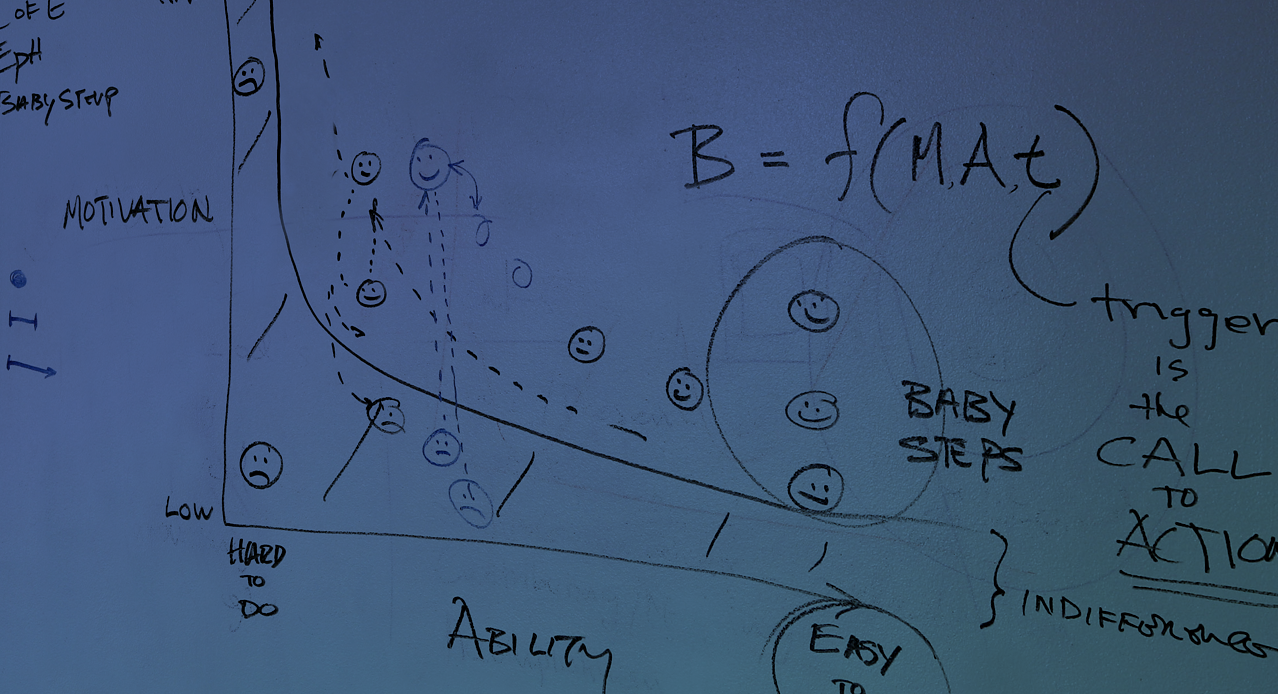 OF E
EPH
BABY STEUP
MOTIVATION
LOW
HARD
TO
DO
ABILITY
EASY
TO
B = f(M,A,t)
trigger
is
the
CALL
TO
ACTION
BABY
STEPS